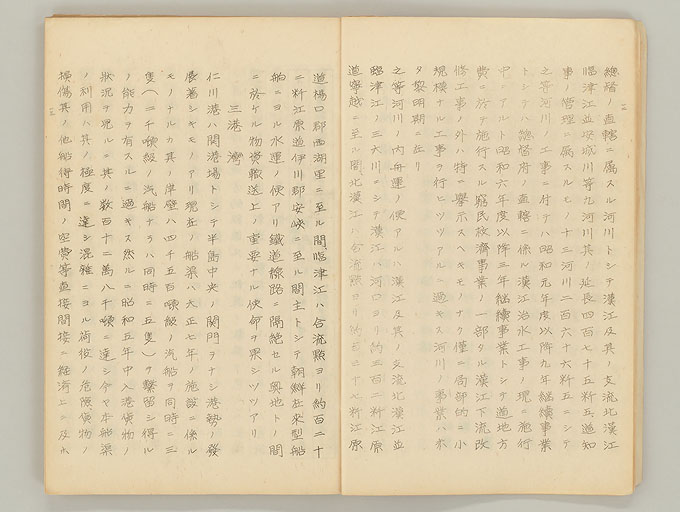 総督ノ直轄ニ属スル河川トシテ漢江及其ノ支流北漢江
臨津江並安城川等九河川其ノ延長四百七十五粁五道知
事ノ管理ニ属スルモノ十三河川二百六十六粁五ニシテ
之等河川ノ工事ニ付テハ昭和元年度以降九年継続事業
トシテハ総督府ノ直轄ニ係ル漢江治水工事ノ現ニ施行
中ノアルト昭和六年度以降三年継続事業トシテ道地方
費ニ於テ施行スル窮民救済事業ノ一部タル漢江下流改
修工事ノ外ハ特ニ挙示スヘキモノナク僅ニ局部的ニ小
規模ナル工事ヲ行ヒツツアルニ過キス河川ノ事業ハ木
タ黎明期ニ在リ
之等河川ノ内舟運ノ便アルハ漢江及其ノ支流北漢江並
臨津江ノ三大川ニシテ漢江ハ河口ヨリ約三百二粁江原
道寧越ニ至ル間北漢江ハ合流点ヨリ約百三十七粁江原
道楊口郡西湖里ニ至ル間臨津江ハ合流点ヨリ約百二十
二粁江原道伊川郡安峡ニ至ル間主トシテ朝鮮在来型船
舶ニヨル水運ノ便アリ鉄道線路ニ隔絶セル奥地トノ間
ニ於ケル物資輸送上ノ重要ナル使命ヲ果シツツアリ
三港湾
仁川港ハ開港場トシテ半島中央ノ関門ヲナシ港勢ノ発
展著シキモノアリ現在ノ船渠ハ大正七年ノ施設ニ係ル
モノナルカ其ノ岸壁ハ四千五百噸級ノ汽船ヲ同時ニ三
隻(二千噸級ノ汽船ナラハ同時ニ五隻)ヲ繋留シ得ル
ノ能力ヲ有スルニ過キス然ルニ昭和五年中入港貨物ノ
状況ヲ見ルニ其ノ数百十二萬八千噸ニ達シ今ヤ本船渠
ノ利用ハ其ノ極度ニ達シ混雑ニヨル荷役ノ危険貨物ノ
損傷其ノ他船待時間ノ空費等直接間接ニ経済上ニ及ホ